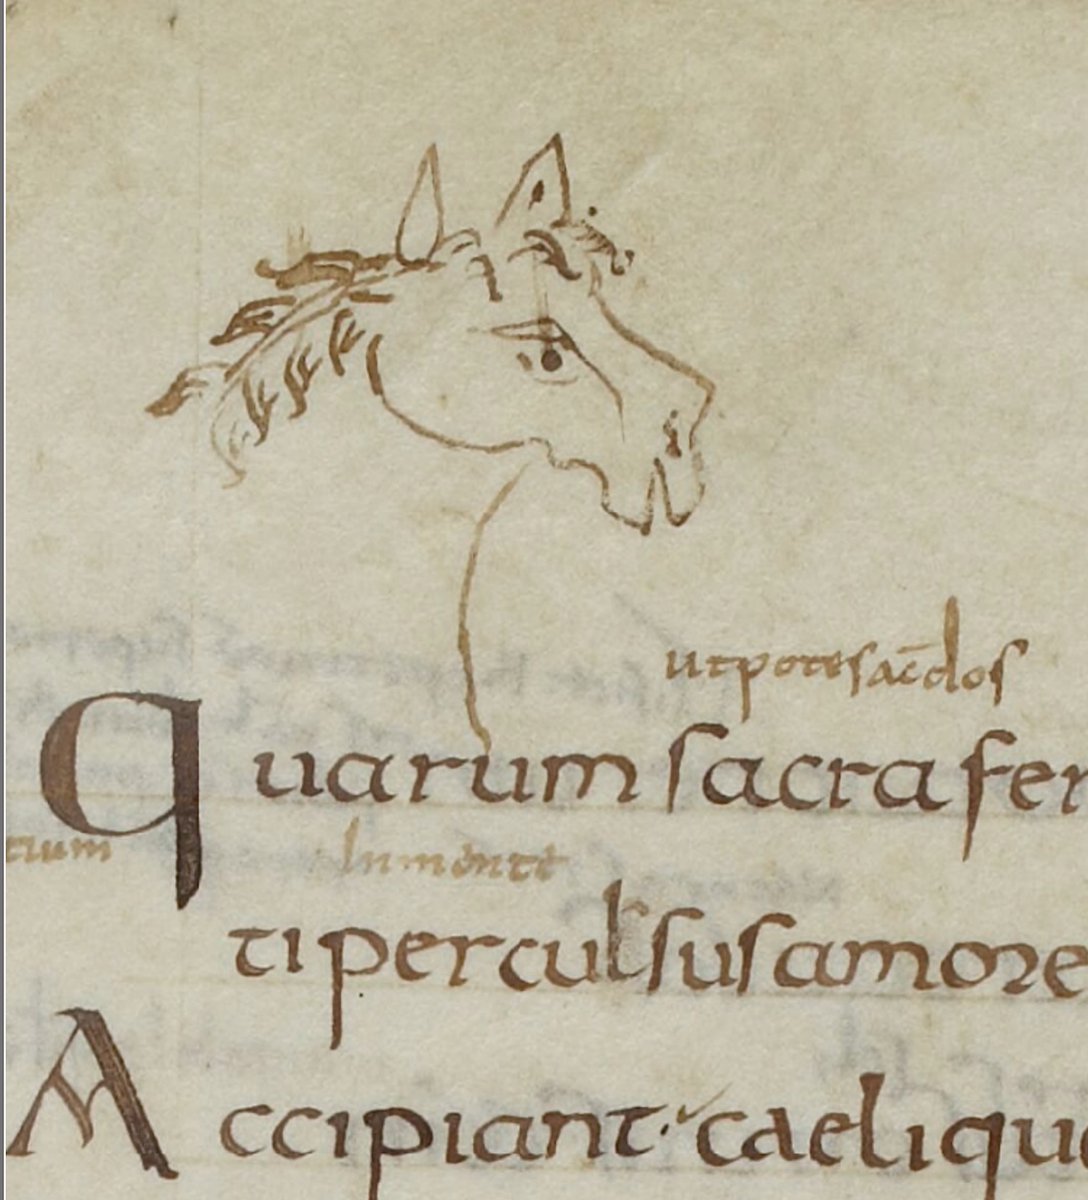 utpote sac̄dos
Quarum sacra fer
tium In monte
ti perculsus amore
Accipiant· caelique